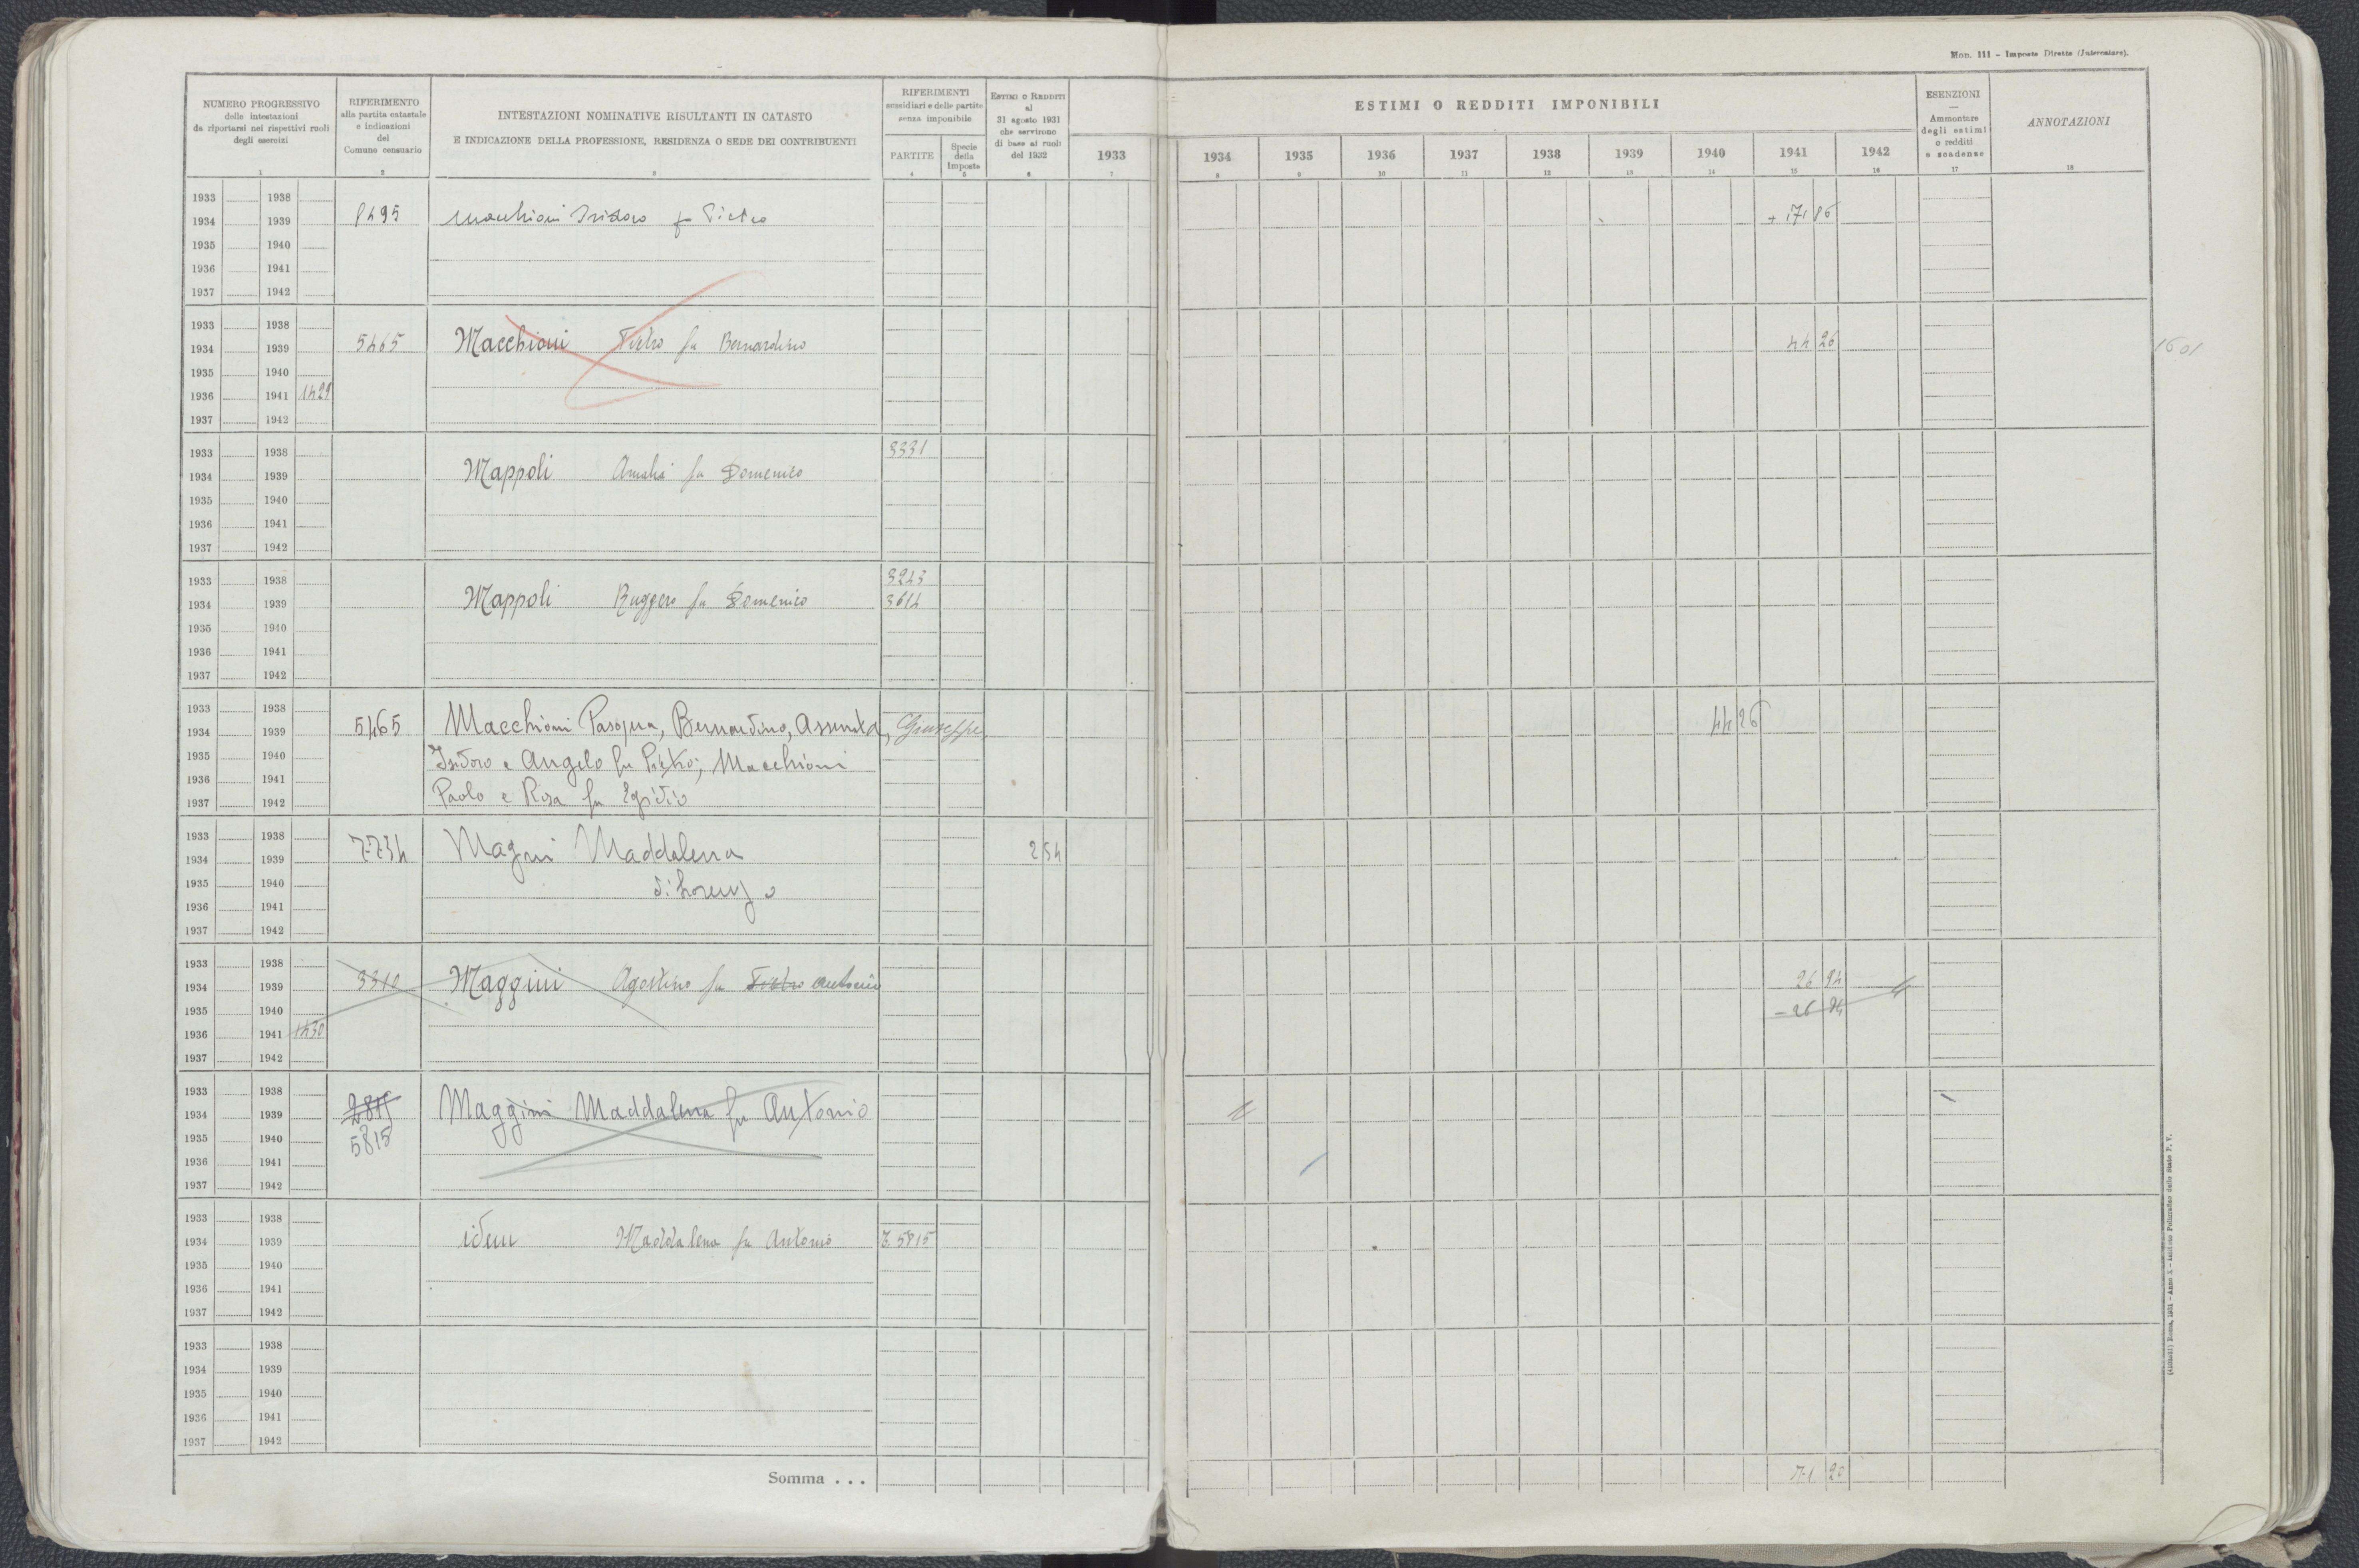 Mod. 111 - Imposte Dirette (Intercalare).
NUMERO PROGRESSIVO
delle intestazioni
da riportarsi nei rispettivi ruoli
degli esercizi
RIFERIMENTO
alla partita catastale
e indicazioni
del
Comune censuario
INTESTAZIONI NOMINATIVE RISULTANTI IN CATASTO
E INDICAZIONE DELLA PROFESSIONE, RESIDENZA O SEDE DEI CONTRIBUENTI
RIFERIMENTI
sussidiari e delle partite
senza imponibile
PARTITE
Specie
della
Imposta
ESTIMI O REDDITI
al
31 agosto 1931
che servirono
di base ai ruoli
del 1932
ESTIMI O REDDITI IMPONIBILI
1933 1934 1935 1936 1937 1938 1939 1940 1941 1942
ESENZIONI
—
Ammontare
degli estimi
o redditi
e scadenze
ANNOTAZIONI
1 2 3 4 5 6 7 8 9 10 11 12 13 14 15 16 17 18
1933 1938
1934 1939 8495 Macchioni Isidoro fu Pietro + 171 86
1935 1940
1936 1941
1937 1942
1933 1938
1934 1939 5465 Macchioni Pietro fu Bernardino 44 26 1601
1935 1940
1936 1941 1429
1937 1942
1933 1938 3331
1934 1939 Mappoli Amalia fu Domenico
1935 1940
1936 1941
1937 1942
1933 1938 3243
1934 1939 Mappoli Ruggero fu Domenico 3614
1935 1940
1936 1941
1937 1942
1933 1938
1934 1939 5465 Macchioni Pasqua, Bernardino, Assunta, Giuseppe 44 26
1935 1940 Isidoro e Angelo fu Pietro; Macchioni
1936 1941
1937 1942 Paolo e Rosa fu Egidio
1933 1938
1934 1939 7734 Magni Maddalena 2 54
1935 1940 di Lorenzo
1936 1941
1937 1942
1933 1938
1934 1939 3310 Maggini Agostino fu Pietro Antonio 26 94
1935 1940 - 26 94
1936 1941 1430
1937 1942
1933 1938
1934 1939 2815 Maggini Maddalena fu Antonio
1935 1940 5815
1936 1941
1937 1942
1933 1938
1934 1939 idem Maddalena fu Antonio 5815
1935 1940
1936 1941
1937 1942
1933 1938
1934 1939
1935 1940
1936 1941
1937 1942
Somma . . . 71 20
Roma, 1931 - Anno X - Istituto Poligrafico dello Stato P. V.